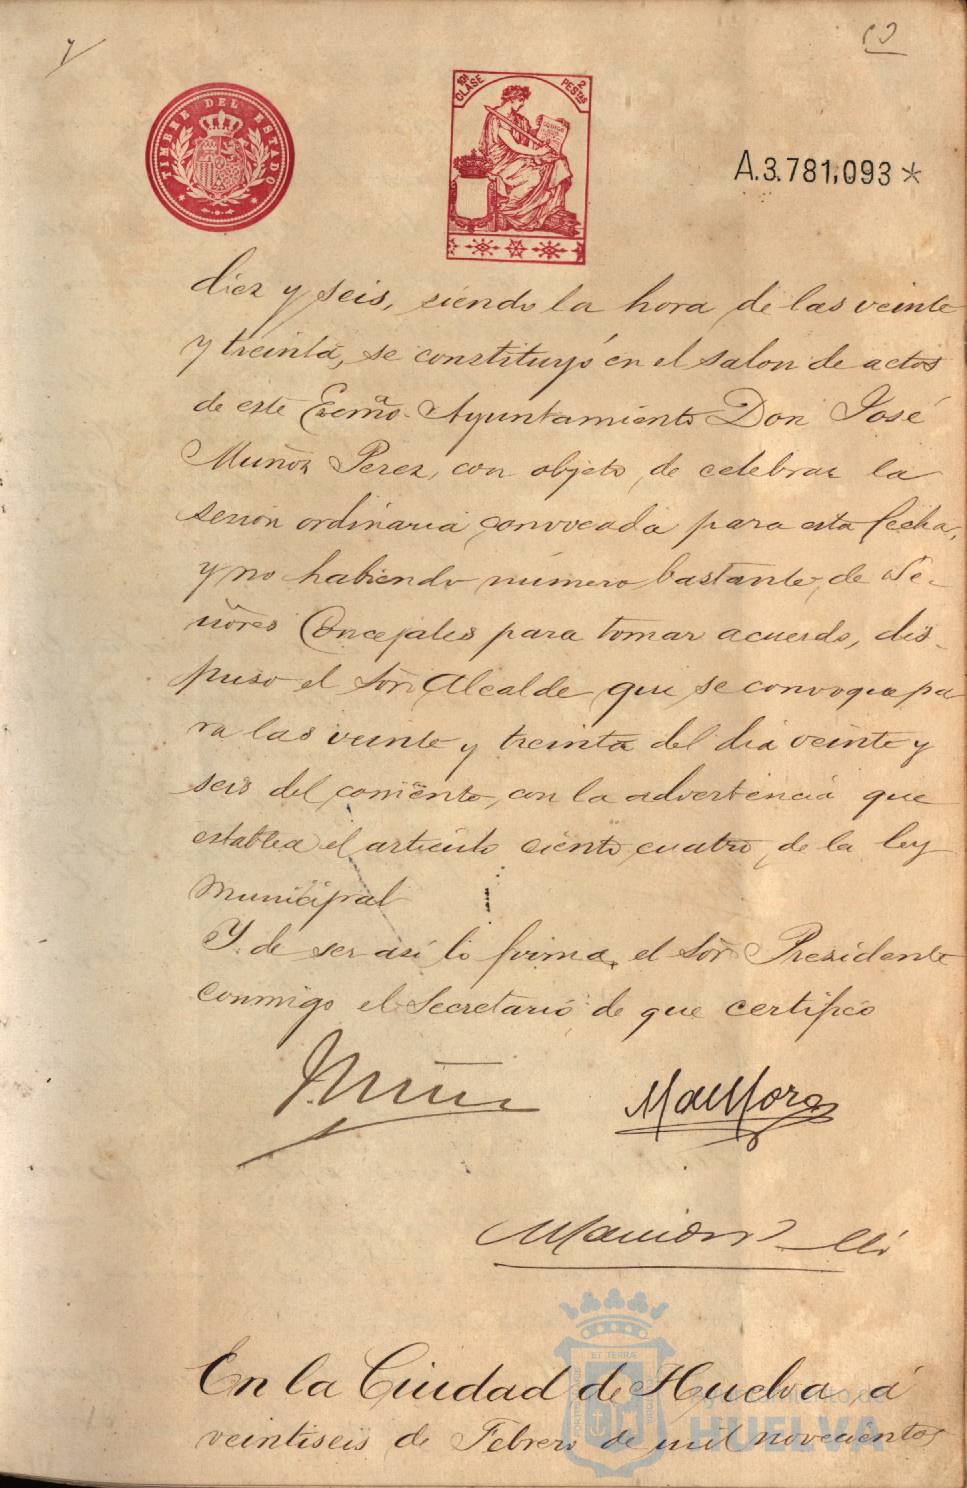 TIMBRE DEL ESTADO
10ª CLASE
2 PESTAS
A.3.781,093*
diez y seis, siendo la hora de las veinte
y treinta, se constituyó en el salon de actos
de este Excmo. Ayuntamiento Don José
Muñoz Perez, con objeto de celebrar la
sesion ordinaria convocada para esta fecha,
y no habiendo número bastante de Se-
ñores Concejales para tomar acuerdo, dis-
puso el Sor. Alcalde que se convoque pa
ra las veinte y treinta del dia veinte y
seis del corriente, con la advertencia que
establece el articulo ciento cuatro de la ley
Municipal
Y de ser asi lo firma el Sor Presidente
conmigo el Secretario de que certifico
En la Ciudad de Huelva, á
veintiseis de Febrero de mil novecientos
Ayuntamiento de
HUELVA